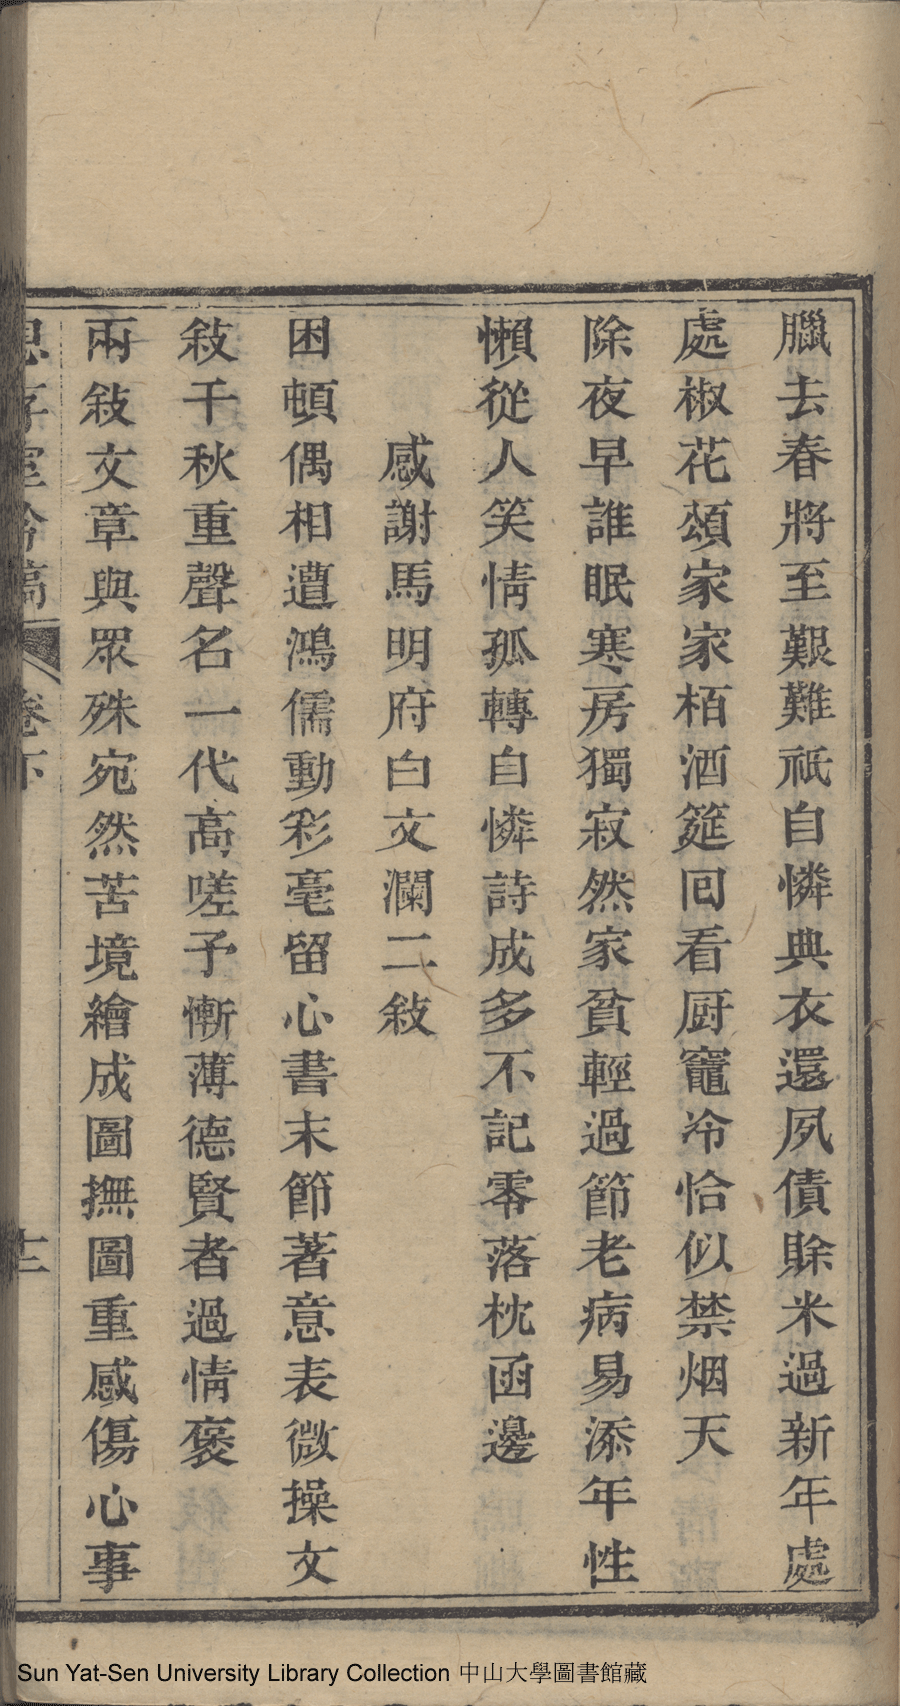 臘去春將至艱難祇自憐典衣還夙債賒米過新年處
處椒花頌家家栢酒筵囘看厨竈冷恰似禁烟天
除夜早誰眠寒房獨寂然家貧輕過節老病易添年性
懶從人笑情孤轉自憐詩成多不記零落枕函邊
感謝馬明府白文瀾二敍
困頓偶相遭鴻儒動彩毫留心書末節著意表微操文
敍千秋重聲名一代高嗟予慚薄德賢者過情褒
兩敍文章與眾殊宛然苦境繪成圖撫圖重感傷心事
卷下
十二
Sun Yat-Sen University Library Collection 中山大學圖書館藏